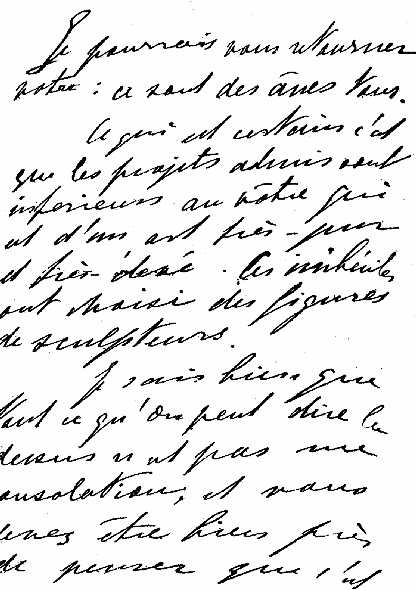 Je pourrais vous retourner
votre : ce sont des ânes tous.
Ce qui est certain c'est
que les projets admis sont
inférieurs au vôtre qui
est d'un art très-pur
et très-élevé. Ces imbéciles
ont choisi des figures
de sculpteurs.
Je sais bien que
tout ce qu'on peut dire là
dessus n'est pas une
consolation, et vous
devez être bien près
de penser que c'est